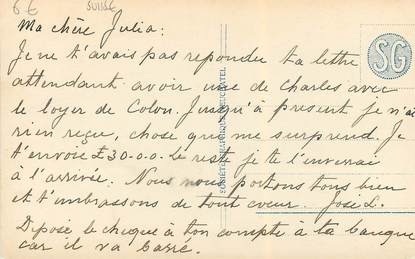 6 € SUISSE
Ma chère Julia:
Je ne t'avais pas repondu ta lettre
attendant avoir une de Charles avec
le loyer de Colon. Jusqu'à present je n'ai
rien reçu, chose que me surprend. Je
t'envoie £30-0-0. Le reste je te l'enverrai
à l'arrivée. Nous nous portons tous bien
et t'embrassons de tout coeur. José L.
Dipose le cheque à ton compte à ta banque
car il va barré.
SG